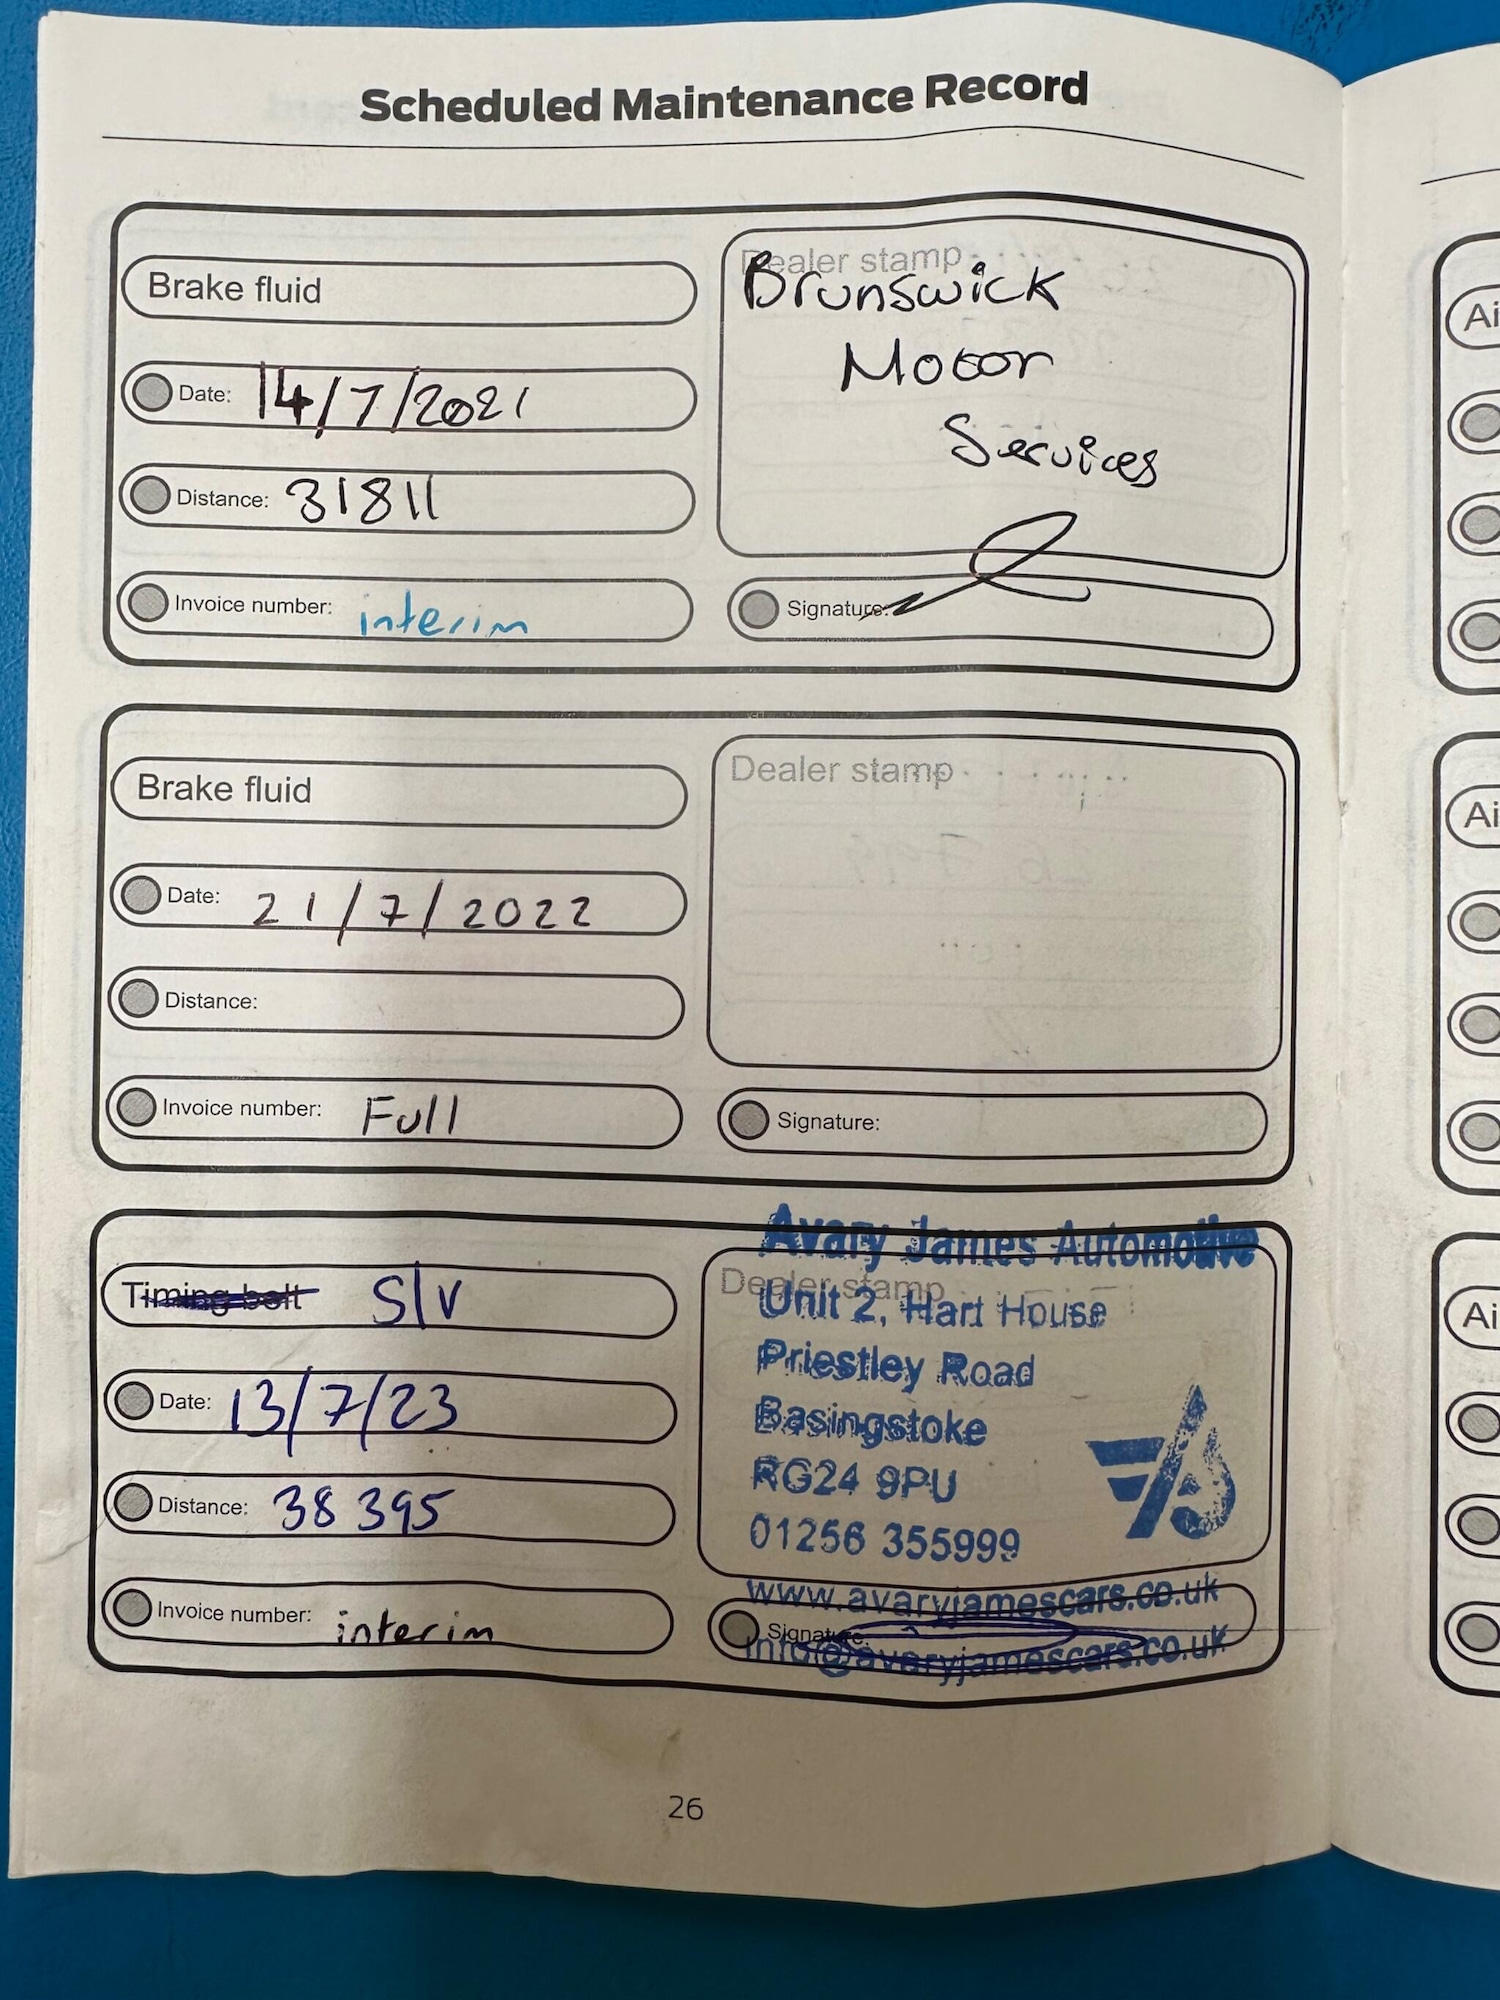 Scheduled Maintenance Record
Brake fluid
Date: 14/7/2021
Distance: 31811
Invoice number: interim
Dealer stamp
Brunswick
Motor
Services
Signature:
Brake fluid
Date: 21/7/2022
Distance:
Invoice number: Full
Dealer stamp
Signature:
Timing belt S/V
Date: 13/7/23
Distance: 38 395
Invoice number: interim
Avary James Automotive
Dealer stamp
Unit 2, Hart House
Priestley Road
Basingstoke
RG24 9PU
01256 355999
www.avaryjamescars.co.uk
Signature:
info@avaryjamescars.co.uk
26
Ai
Ai
Ai